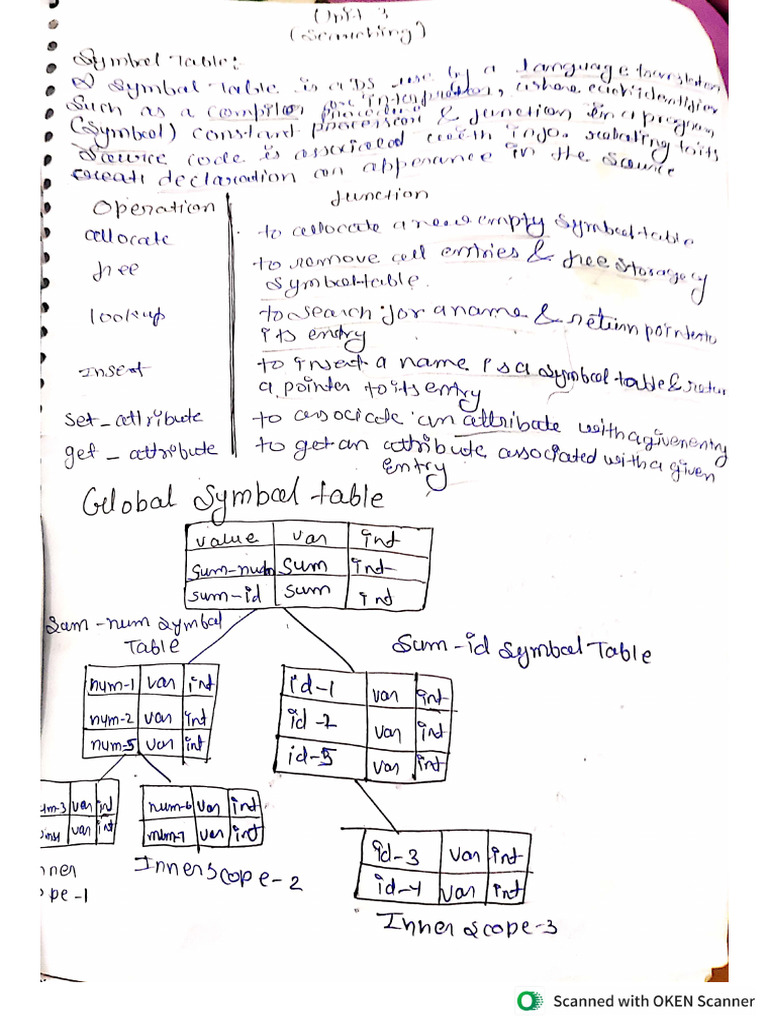 Unit 3
(Searching)
Symbol Table:-
A Symbol Table is a DS use by a language translator
Such as a compiler or interpreter, where each identifier
(symbol) constant procession & function in a program
Source code is associated with info. relating to its
declaration or apperance in the source
Operation Function
allocate to allocate a new empty symbol table
free to remove all entries & free storage of
symbol-table.
lookup to search for a name & return pointer to
its entry
Insert to insert a name is a symbol table & return
a pointer to its entry
set_attribute to associate an attribute with a given entry
get_attribute to get an attribute associated with a given
entry
Global Symbol table
value var int
sum-num sum int
sum-id sum int
Sum-num symbol
Table
Sum-id Symbol Table
num-1 var int
num-2 var int
num-5 var int
id-1 var int
id-2 var int
id-5 var int
m-3 var int
var int
num-6 var int
num-7 var int
nner
ope-1
Inner Scope-2
id-3 var int
id-4 var int
Inner Scope-3
Scanned with OKEN Scanner